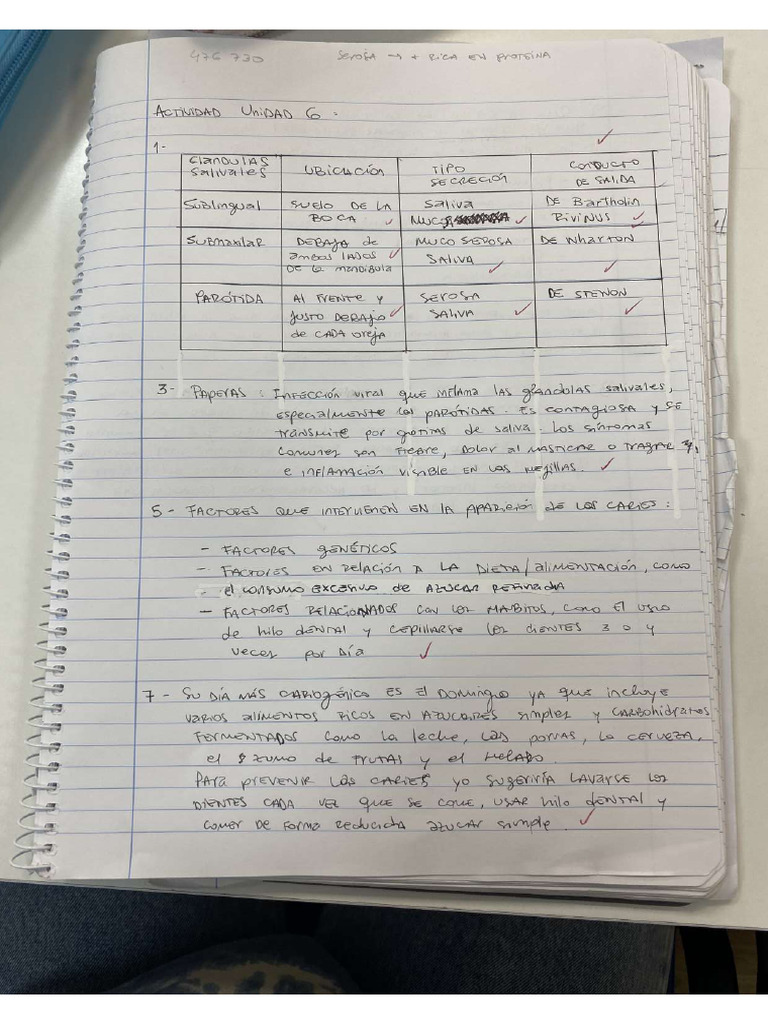 476 730 SEROSA → + RICA EN PROTEINA
ACTIVIDAD UNIDAD 6 :
1-
GLANDULAS SALIVALES UBICACIÓN TIPO SECRECIÓN CONDUCTO DE SALIDA
SUBLINGUAL SUELO DE LA BOCA SALIVA MUCOSA DE Bartholin RIVINUS
SUBMAXILAR DEBAJO de ambos LADOS DE la mandibula MUCO SEROSA SALIVA DE WHARTON
PARÓTIDA Al FRENTE y JUSTO DEBAJO de CADA oreja SEROSA SALIVA DE STENON
3- PAPERAS : INFECCIÓN viral que inflama las glándolas salivales,
especialmente las PARÓTIDAS. Es contagiosa y se
transmite por gotitas de saliva. Los síntomas
comunes son FIEBRE, DOLOR al masticar o tragar
e INFLAMACIÓN visible EN las mejillas.
5 - FACTORES QUE INTERVIENEN EN LA APARICIÓN de LOS CARIES :
- FACTORES GENÉTICOS
- FACTORES EN RELACIÓN A LA DIETA/alimentación, como
el consumo excesivo de AZUCAR REFINADA
- FACTORES RELACIONADOS con los HABITOS, como El uso
de hilo DENTAL y cepillarse los dientes 3 o 4
veces por día
7 - Su DÍA MÁS CARIOGÉNICO ES El DOMINGO ya que incluye
varios alimentos RICOS EN AZUCARES simples y CARBOHIDRATOS
FERMENTADOS como la leche, las porvas, la cerveza,
el zumo de FRUTAS y el HELADO.
PARA prevenir las CARIES yo sugeriría lavarse los
dientes CADA vez que se come, usar hilo dental y
comer de forma reducida azucar simple.